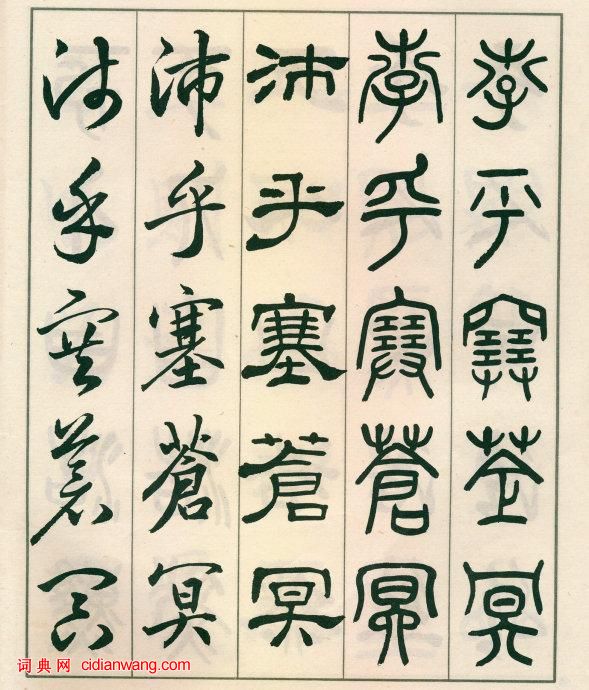 孛乎塞蒼冥
孛乎塞蒼冥
沛乎塞蒼冥
沛乎塞蒼冥
沛乎塞蒼冥
词典网 cidianwang.com